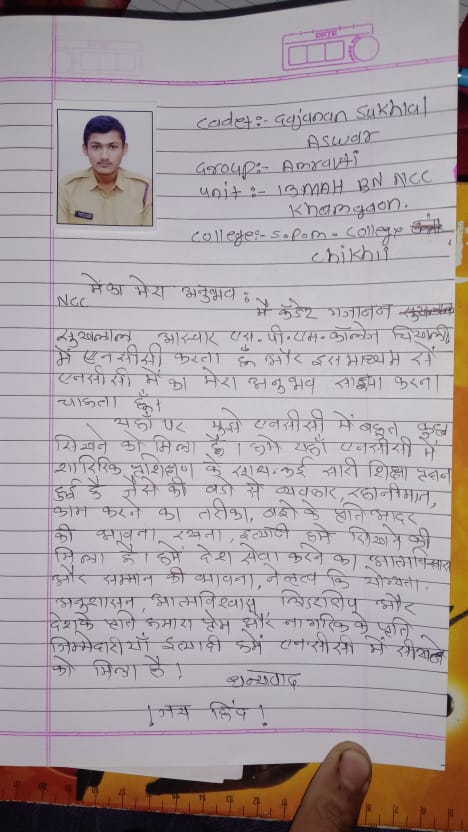 DATE
Cadet:- Gajanan Sukhlal
Aswar
Group:- Amravati
Unit:- 13 MAH BN NCC
Khamgaon.
College:- S.P.M. College
Chikhli
NCC मेंका मेरा अनुभव :
मै कॅडेट गजानन
सुखलाल आस्वार एस.पी.एम. कॉलेज चिखली
में एनसीसी करता हुँ और इस माध्यम से
एनसीसी में का मेरा अनुभव साझा करना
चाहता हूँ।
यहाँ पर मुझे एनसीसी में बहुत कुछ
सिखने को मिला है। हमे यहाँ एनसीसी में
शारिरिक प्रशिक्षण के साथ-कई सारी शिक्षा
हुई है जैसे की बडो से व्यवहार,
काम करने का तरीका, बडो के प्रति आदर
की भावना, रचना, इत्यादी हमे सिखने को
मिला है। हमें देश सेवा करने का आत्मविश्वास
और सम्मान की भावना, नेतृत्व कि योग्यता.
अनुशासन, आत्मविश्वास लिडरशिप और
देशके प्रति हमारा प्रेम और नागरिक के प्रति
जिम्मेदारीयाँ इत्यादी हमें एनसीसी में सीखने
को मिला है!
धन्यवाद
!जय हिंद!